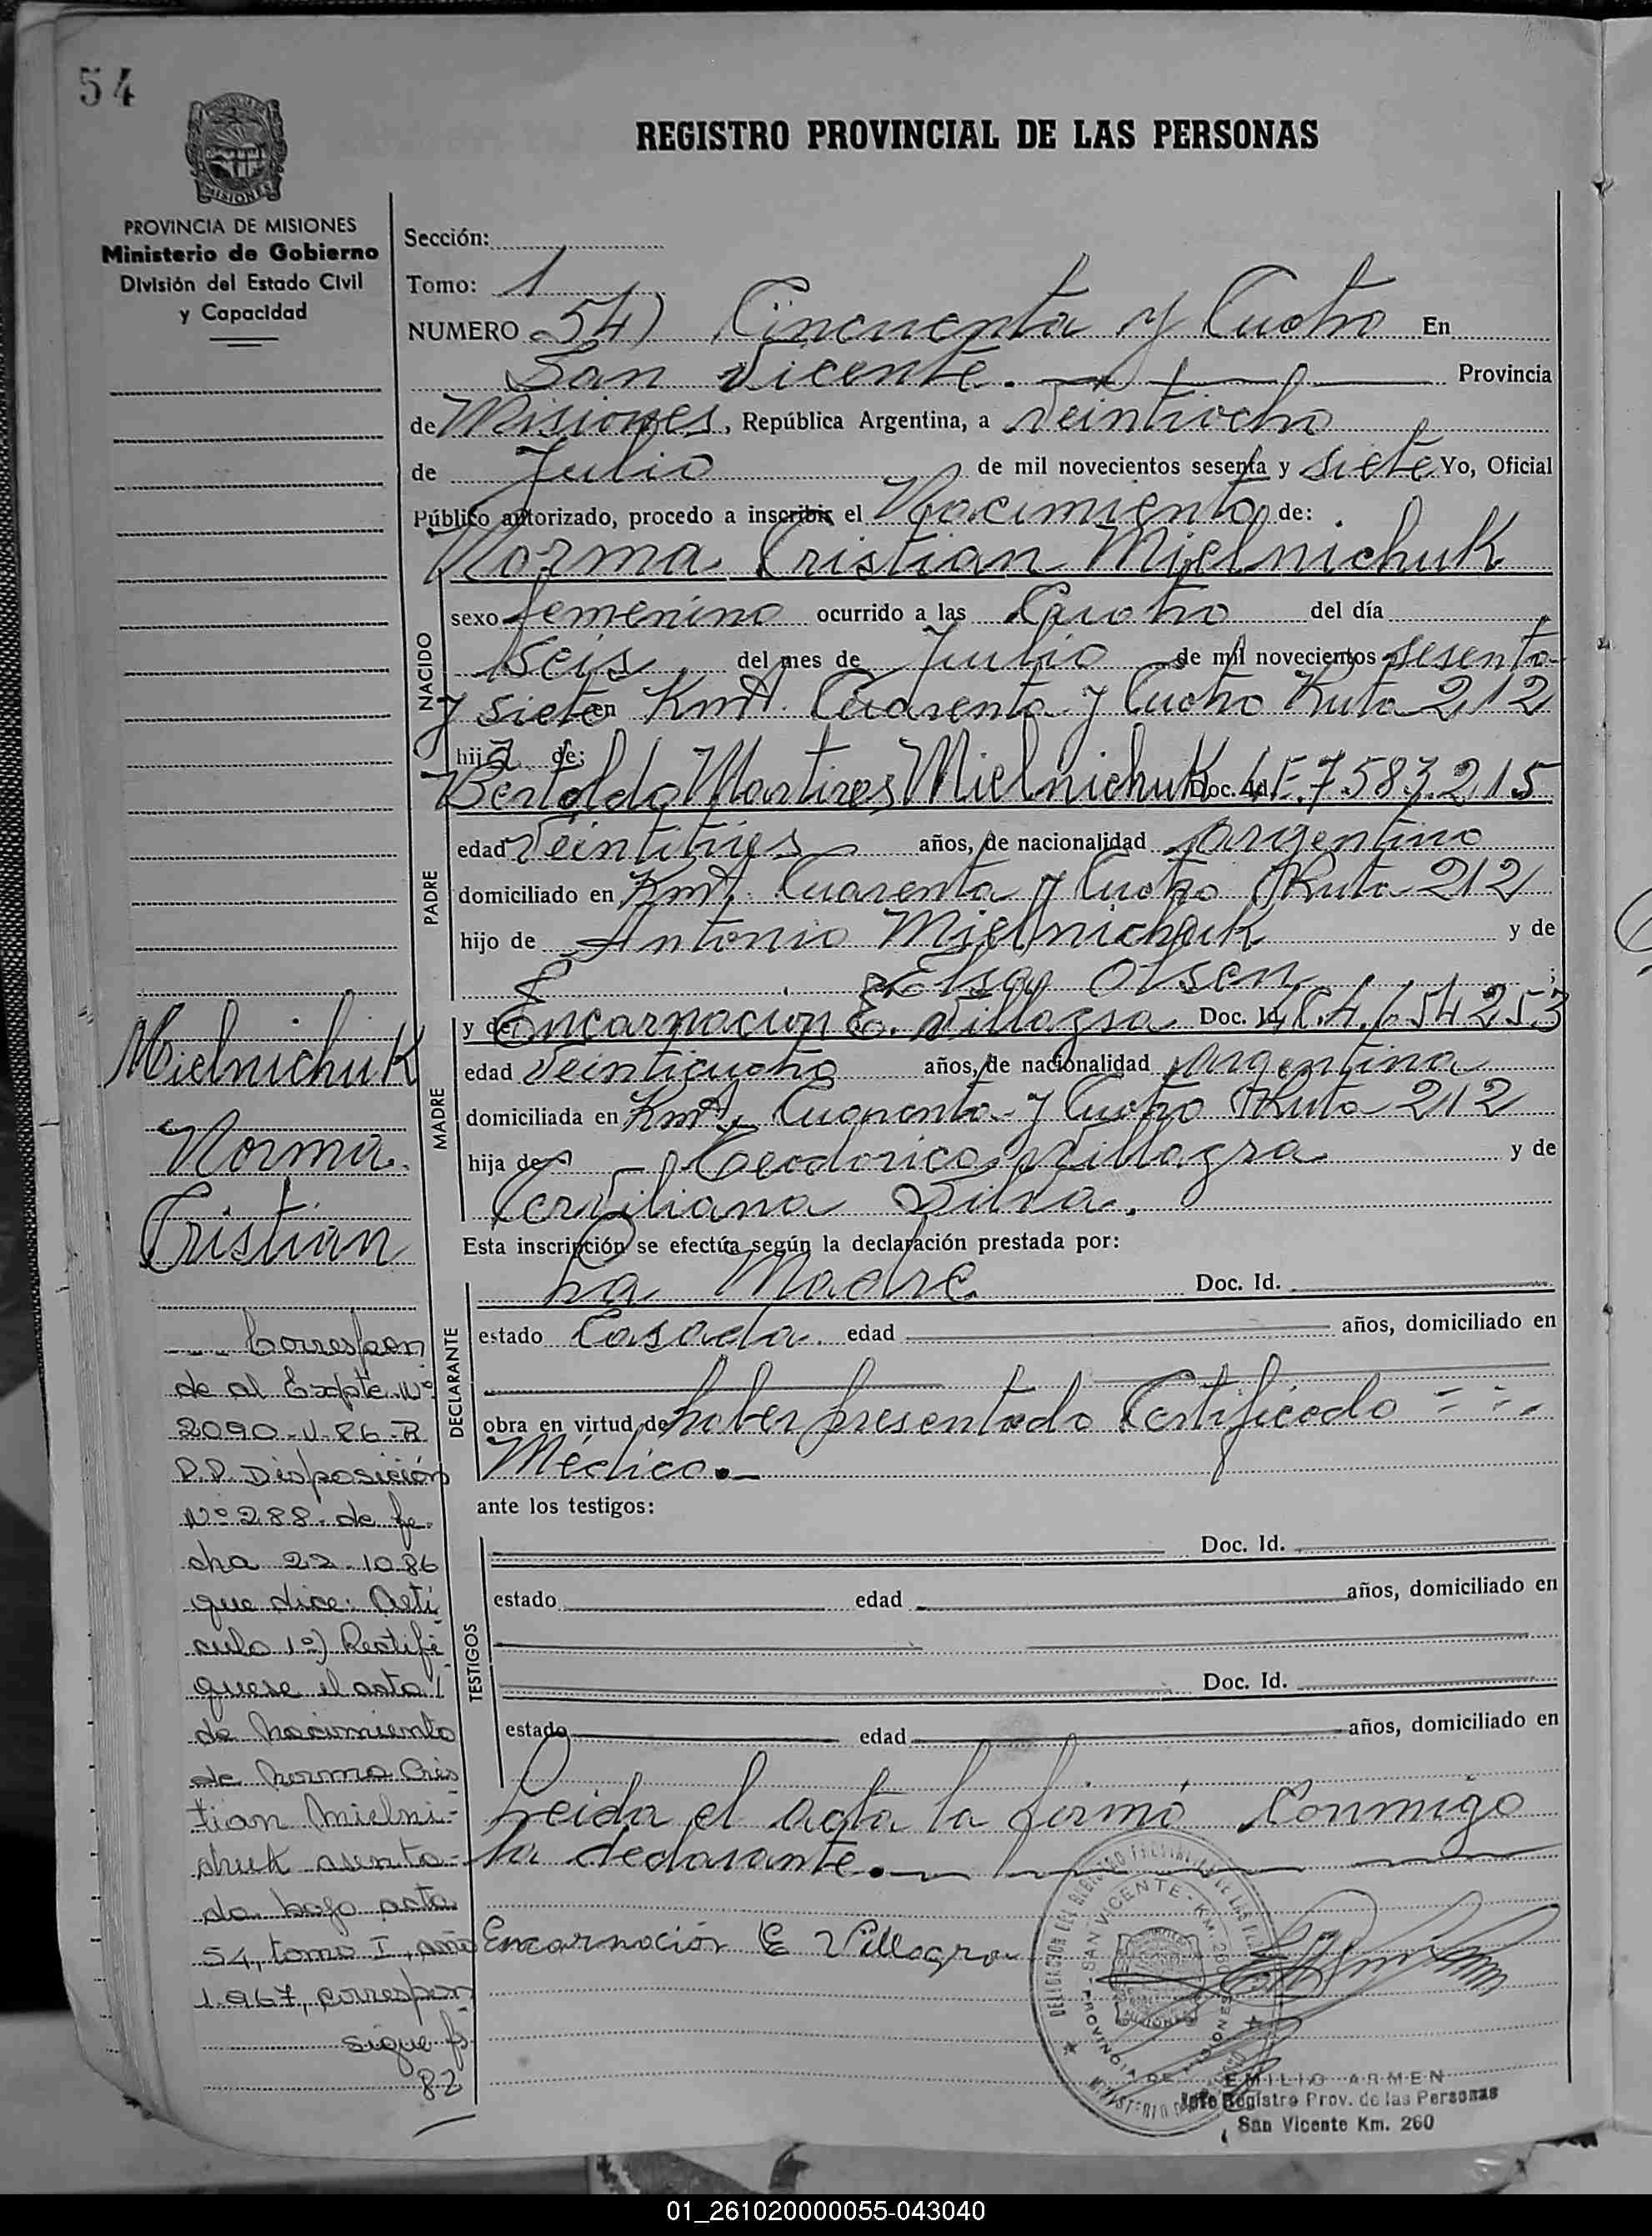 54
REGISTRO PROVINCIAL DE LAS PERSONAS
MISIONES
PROVINCIA DE MISIONES
Ministerio de Gobierno
División del Estado Civil
y Capacidad
Sección:
Tomo: 1
NUMERO 54) Cincuenta y Cuatro En
San Vicente. Provincia
de Misiones, República Argentina, a Veintiocho
de Julio de mil novecientos sesenta y siete Yo, Oficial
Público autorizado, procedo a inscribir el Nacimiento de:
Norma Cristian Mielnichuk
NACIDO
sexo femenino ocurrido a las Cuatro del día
Seis del mes de Julio de mil novecientos sesenta
y siete en Kmt. Cuarenta y Cuatro Ruta 212
hija de:
PADRE
Bertoldo Martires Mielnichuk Doc. Id. L.E. 7.583.215
edad Veintitres años, de nacionalidad Argentino
domiciliado en Kmt. Cuarenta y Cuatro Ruta 212
hijo de Antonio Mielnichuk y de
Elsa Olsen
MADRE
y de Encarnacion E. Villagra Doc. Id.
edad Veinticuatro años, de nacionalidad Argentina
domiciliada en Kmt. Cuarenta y Cuatro Ruta 212
hija de Teodorico Villagra y de
Silva.
Esta inscripción se efectúa según la declaración prestada por:
DECLARANTE
La Madre Doc. Id.
estado Casada. edad años, domiciliado en
obra en virtud de haber presentado Certificado
Médico.
ante los testigos:
TESTIGOS
Doc. Id.
estado edad años, domiciliado en
Doc. Id.
estado edad años, domiciliado en
Leida el acta la firmó Conmigo
la declarante.
Encarnación E Villagra
Mielnichuk
Norma
Cristian
Correspon
de al Expte. Nº
2090-V-86-R
P.P. Disposición
Nº 288 de fe-
cha 22-10-86
que dice: Artí
culo 1º) Rectifí
quese el acta
de Nacimiento
de Norma Cris
tian Mielni-
chuk asenta-
da bajo acta
54, tomo I, año
1.967, correspon
sigue fs.
82
SAN VICENTE - KM. 260
PROVINCIA DE MISIONES
EMILIO ARMEN
Jefe Registro Prov. de las Personas
San Vicente Km. 260
01_261020000055-043040